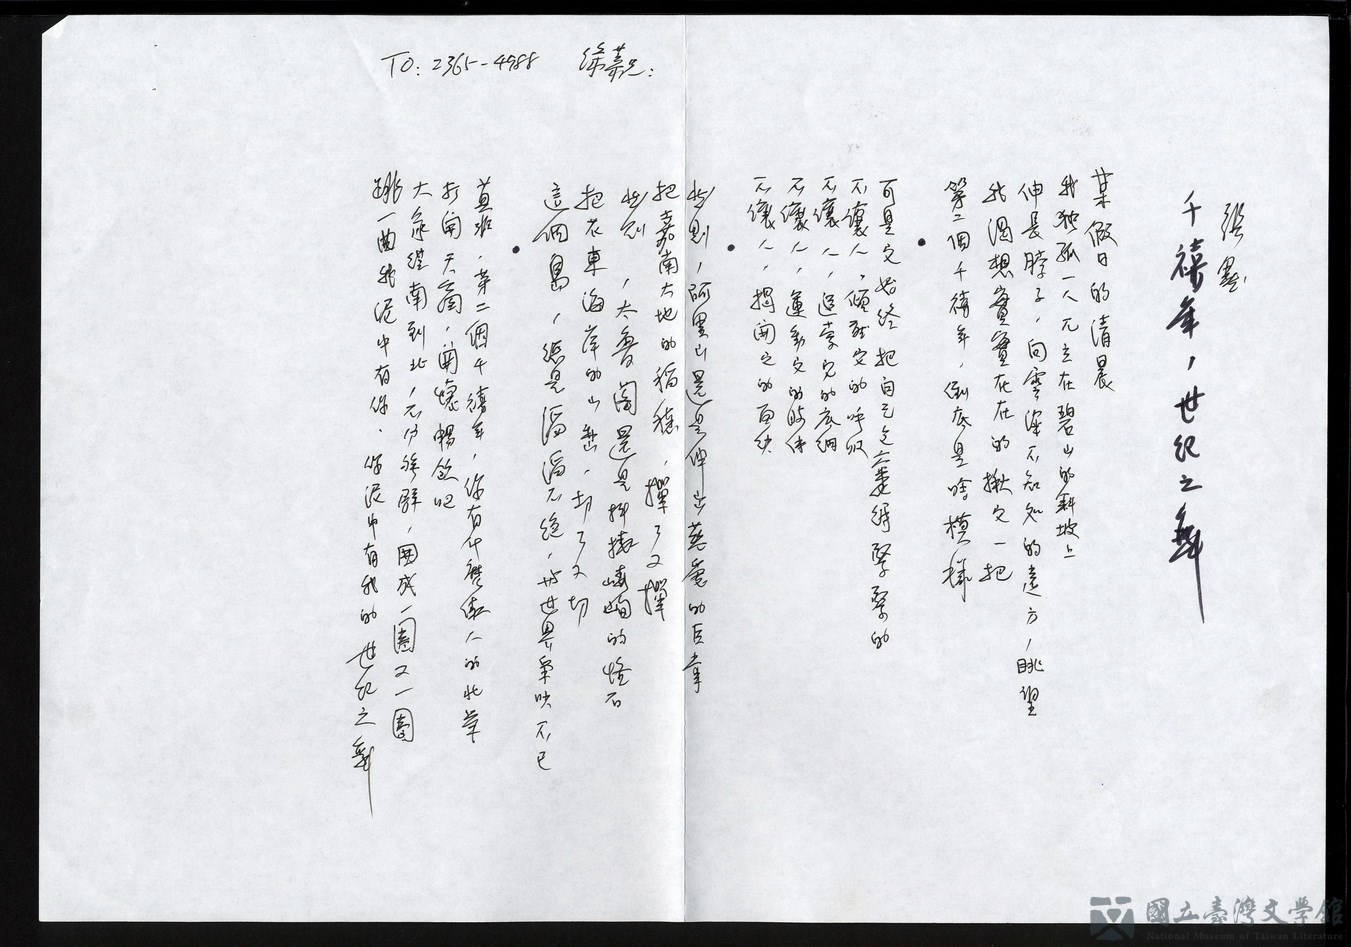 TO: 2365-4988 徐慕兄:
張默
千禧年，世紀之舞
某假日的清晨
我独孤一人兀立在碧山的斜坡上
伸長脖子，向雲深不知知的遠方，眺望
我渴想實實在在的揪它一把
第二個千禧年，倒底是啥模樣
●
可是它始終把自己包裹得緊緊的
不讓人，傾聽它的呼吸
不讓人，追索它的底細
不讓人，運動它的肢体
不讓人，揭開它的面紗
●
此刻，阿里山還是伸出蒼鬱的巨掌
把嘉南大地的稻穗，撢了又撢
此刻，太魯閣還是抑揚嶙峋的怪石
把花東海岸的山巒，切了又切
這個島，總是滔滔不絕，與世界爭吵不已
●
莫非，第二個千禧年，你有什麼傲人的北草
打開天窗，開懷暢飲吧
大家從南到北，不分族群，圍成一圈又一圈
跳一曲我泥中有你，你泥中有我的世紀之舞
國立臺灣文學館
National Museum of Taiwan Literature